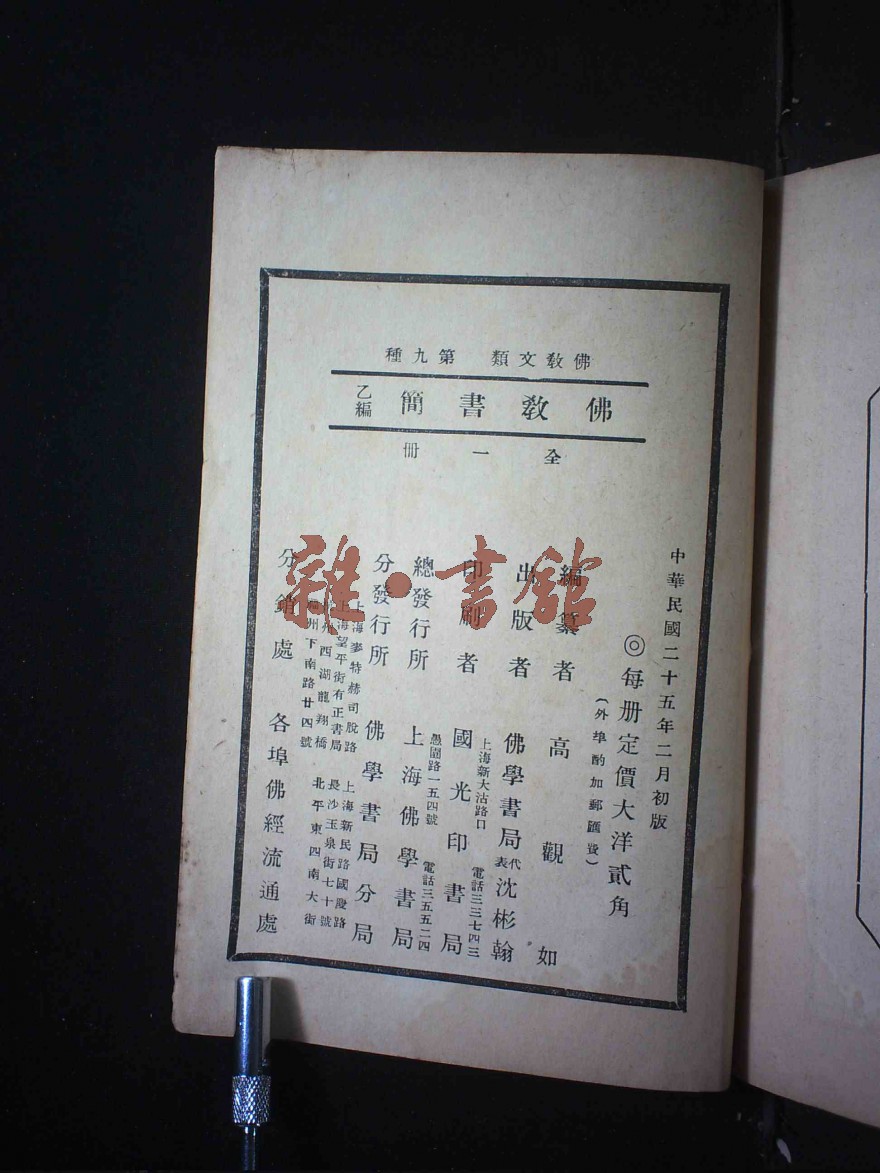 佛教文類 第九種
佛教書簡 乙編
全一冊
中華民國二十五年二月初版
◎每册定價大洋貳角
(外埠酌加郵匯費)
編纂者 高觀如
出版者 佛學書局代表沈彬翰
上海新大沽路口 電話三三七四三
印刷者 國光印書局
愚園路一五四號 電話三五五二四
總發行所 上海佛學書局
分發行所 佛學書局分局
上海麥特赫司脫路 上海新民路國慶路
上海望平街有正書局 長沙玉泉街七十號
州西湖龍翔橋 北平東四南大街
州下南路廿四號
分銷處 各埠佛經流通處
雜·書館